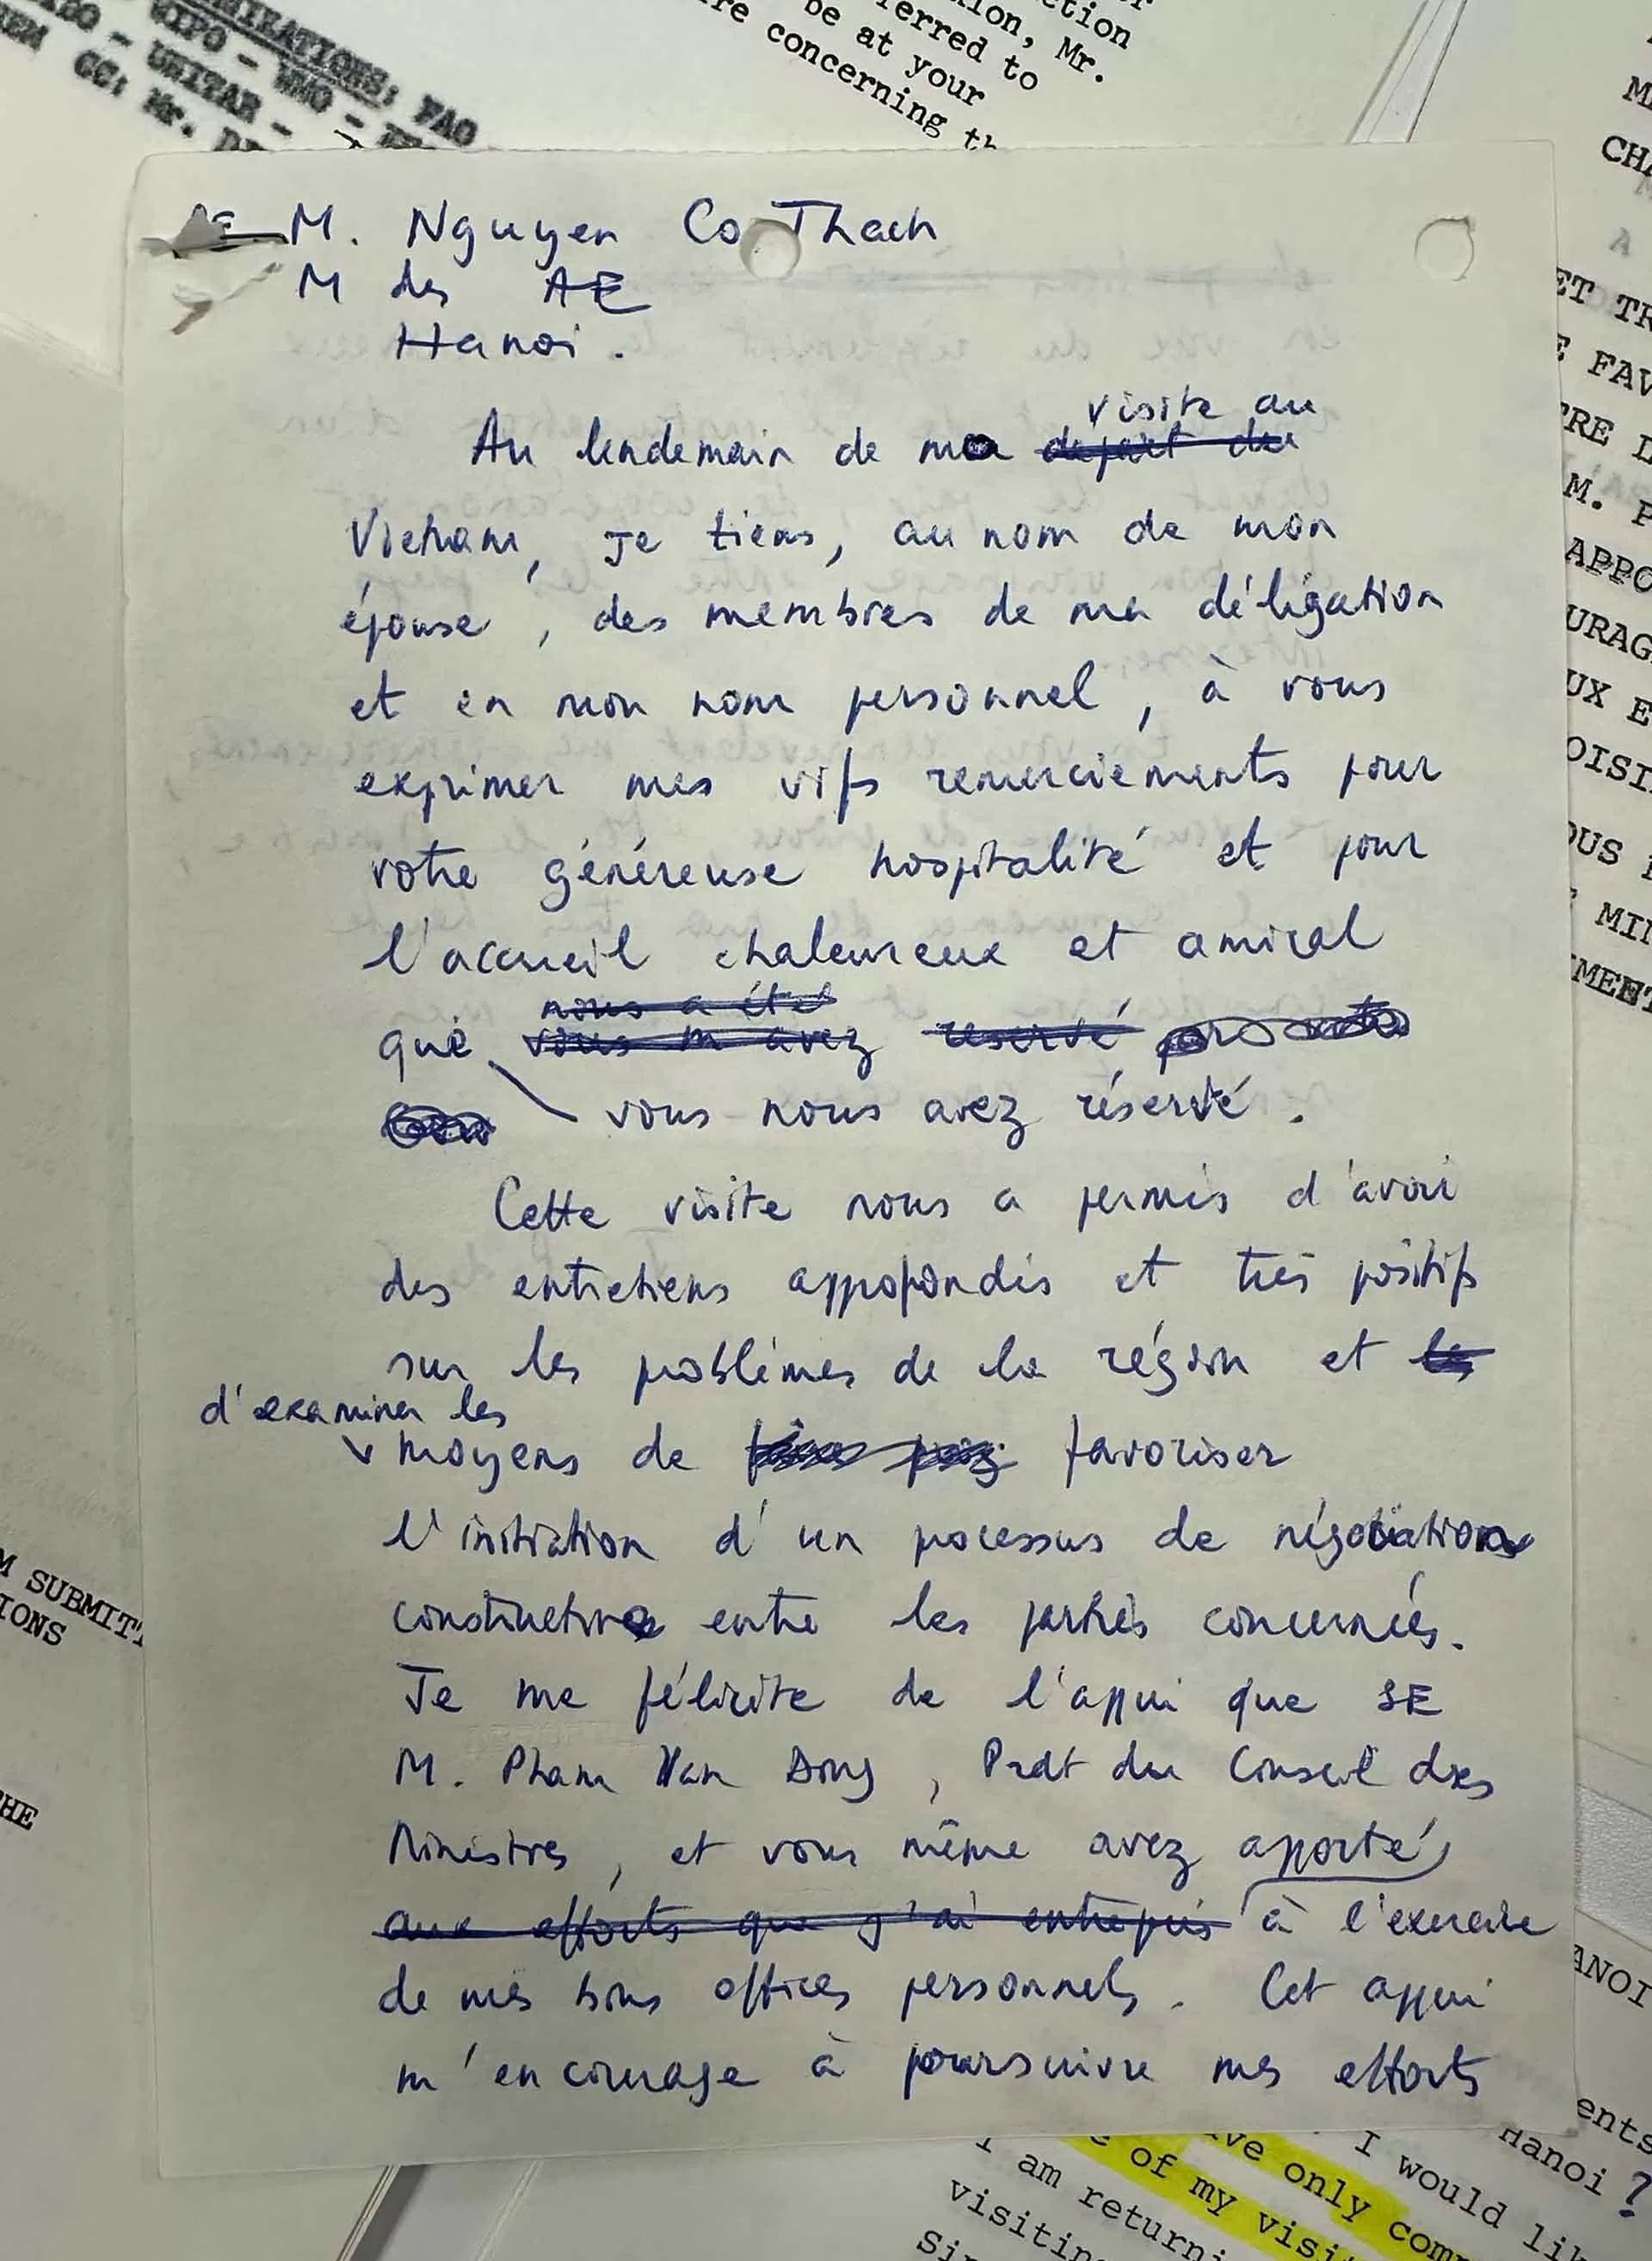 MIRATIONS: FAO
WIPO - WMO -
UNITAR -
CC: Mr.
ction
ion, Mr.
erred to
be at your
re concerning th
M. Nguyen Co Thach
M des AE
Hanoi.
visite au
Au lendemain de ma depart du
Vietnam, je tiens, au nom de mon
épouse, des membres de ma délégation
et en mon nom personnel, à vous
exprimer mes vifs remerciements pour
votre généreuse hospitalité et pour
l'accueil chaleureux et amical
nous a été
que vous m'avez reservé
vous nous avez réservé.
Cette visite nous a permis d'avoir
des entretiens appofondis et très positifs
sur les problèmes de la région et les
d'examiner les
moyens de favoriser
l'initiation d'un processus de négociations
constructives entre les parties concernées.
Je me félicite de l'appui que SE
M. Pham Van Dong, Prdt du Conseil des
Ministres, et vous même avez apporté
aux efforts que j'ai entrepris à l'exercice
de mes bons offices personnels. Cet appui
m'encourage à poursuivre mes efforts
CHA
ET TR
E FAV
TRE L
M. P
APPO
URAG
UX E
OISI
OUS
MIN
MENT
M SUBMITT
IONS
HE
ANOI
ents
Hanoi?
I would lik
ve only comm
e of my visi
I am returni
visiting
Sir